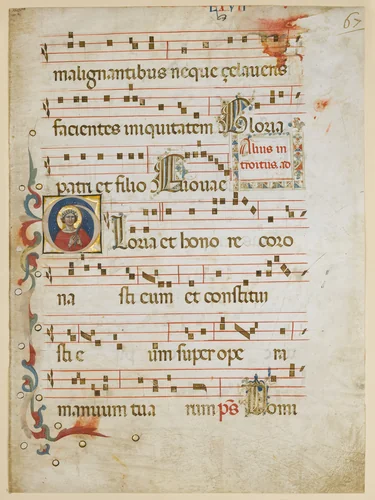 LVII
67
malignantibus neque zelaveris
facientes iniquitatem Gloria
Alius in
troitus ad
patri et filio Euouae
Gloria et hono re coro
na sti eum et constitui
sti e um super ope ra
manuum tua rum ps Domi